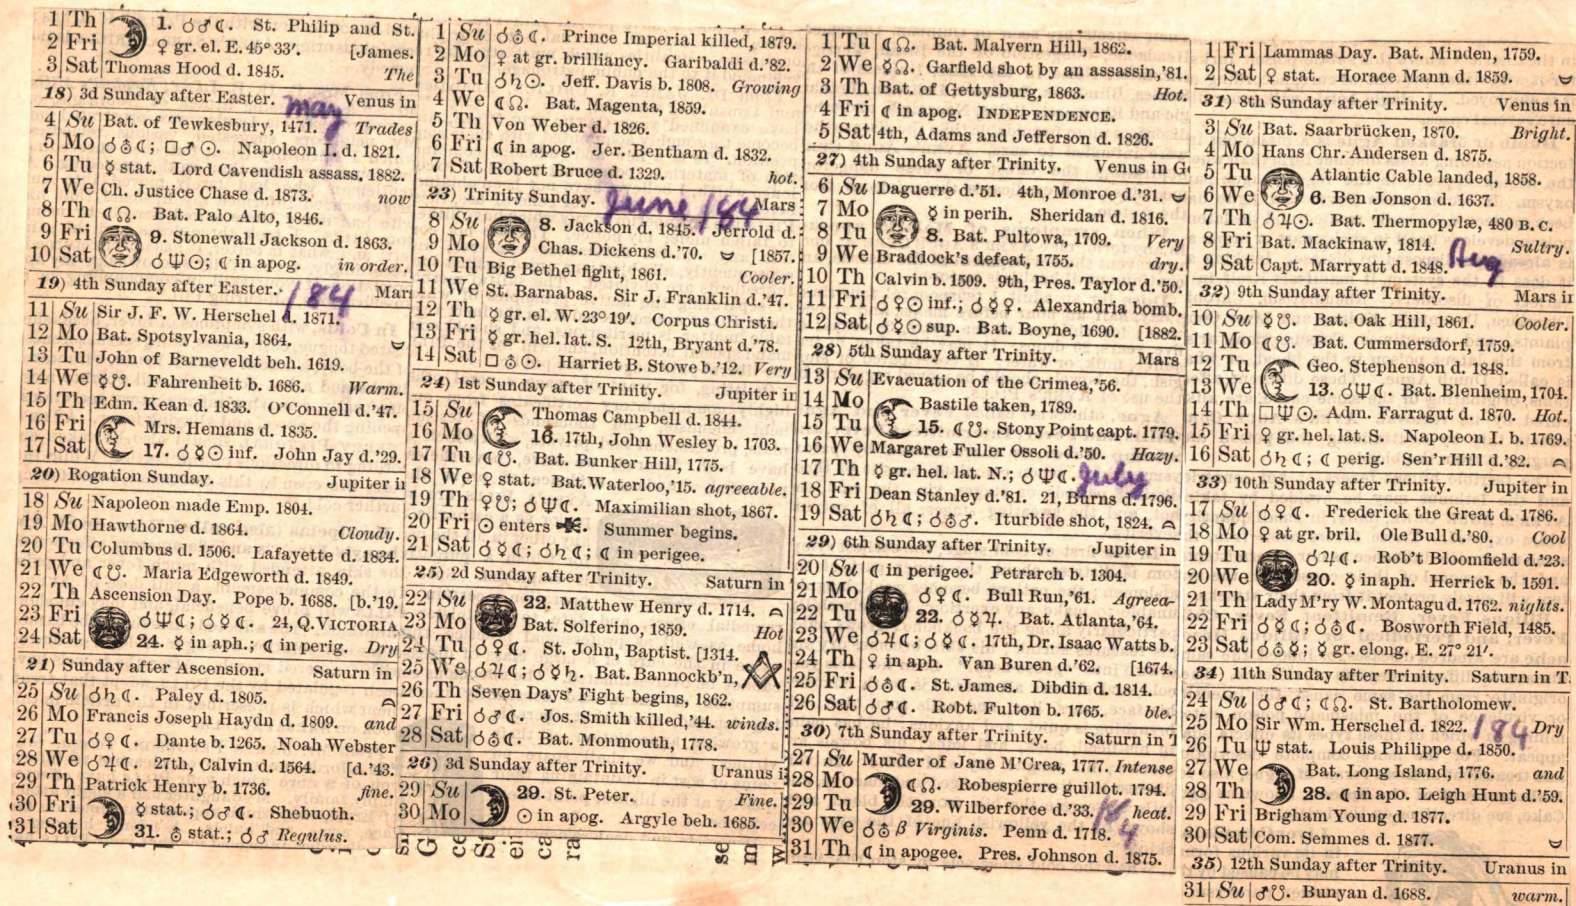 1 Th 1. ☌♂☾. St. Philip and St.
2 Fri ♀ gr. el. E. 45° 33′. [James.
3 Sat Thomas Hood d. 1845. The
18) 3d Sunday after Easter. Venus in
may
4 Su Bat. of Tewkesbury, 1471. Trades
5 Mo ☌♅☾; □♂☉. Napoleon I. d. 1821.
6 Tu ☿ stat. Lord Cavendish assass. 1882.
7 We Ch. Justice Chase d. 1873. now
8 Th ☾☊. Bat. Palo Alto, 1846.
9 Fri 9. Stonewall Jackson d. 1863.
10 Sat ☌♆☉; ☾ in apog. in order.
19) 4th Sunday after Easter. Mars
184
11 Su Sir J. F. W. Herschel d. 1871.
12 Mo Bat. Spotsylvania, 1864.
13 Tu John of Barneveldt beh. 1619.
14 We ☿☋. Fahrenheit b. 1686. Warm.
15 Th Edm. Kean d. 1833. O'Connell d.'47.
16 Fri Mrs. Hemans d. 1835.
17 Sat 17. ☌☿☉ inf. John Jay d.'29.
20) Rogation Sunday. Jupiter in
18 Su Napoleon made Emp. 1804.
19 Mo Hawthorne d. 1864. Cloudy.
20 Tu Columbus d. 1506. Lafayette d. 1834.
21 We ☾☋. Maria Edgeworth d. 1849.
22 Th Ascension Day. Pope b. 1688. [b.'19.
23 Fri ☌♆☾; ☌☿☾. 24, Q. VICTORIA
24 Sat 24. ☿ in aph.; ☾ in perig. Dry
21) Sunday after Ascension. Saturn in
25 Su ☌♄☾. Paley d. 1805.
26 Mo Francis Joseph Haydn d. 1809. and
27 Tu ☌♀☾. Dante b. 1265. Noah Webster
28 We ☌♃☾. 27th, Calvin d. 1564. [d.'43.
29 Th Patrick Henry b. 1736. fine.
30 Fri ☿ stat.; ☌♂☾. Shebuoth.
31 Sat 31. ♅ stat.; ☌♂ Regulus.
1 Su ☌♅☾. Prince Imperial killed, 1879.
2 Mo ♀ at gr. brilliancy. Garibaldi d.'82.
3 Tu ☌♄☉. Jeff. Davis b. 1808. Growing
4 We ☾☊. Bat. Magenta, 1859.
5 Th Von Weber d. 1826.
6 Fri ☾ in apog. Jer. Bentham d. 1832.
7 Sat Robert Bruce d. 1329. hot.
23) Trinity Sunday. Mars
June 184
8 Su 8. Jackson d. 1845. Jerrold d.
9 Mo Chas. Dickens d.'70. [1857.
10 Tu Big Bethel fight, 1861. Cooler.
11 We St. Barnabas. Sir J. Franklin d.'47.
12 Th ☿ gr. el. W. 23° 19′. Corpus Christi.
13 Fri ☿ gr. hel. lat. S. 12th, Bryant d.'78.
14 Sat □♅☉. Harriet B. Stowe b.'12. Very
24) 1st Sunday after Trinity. Jupiter in
15 Su Thomas Campbell d. 1844.
16 Mo 16. 17th, John Wesley b. 1703.
17 Tu ☾☋. Bat. Bunker Hill, 1775.
18 We ♀ stat. Bat. Waterloo,'15. agreeable.
19 Th ♀☋; ☌♆☾. Maximilian shot, 1867.
20 Fri ☉ enters ♋. Summer begins.
21 Sat ☌☿☾; ☌♄☾; ☾ in perigee.
25) 2d Sunday after Trinity. Saturn in
22 Su 22. Matthew Henry d. 1714.
23 Mo Bat. Solferino, 1859. Hot
24 Tu ☌♀☾. St. John, Baptist. [1314.
25 We ☌♃☾; ☌☿♄. Bat. Bannockb'n,
26 Th Seven Days' Fight begins, 1862.
27 Fri ☌♂☾. Jos. Smith killed,'44. winds.
28 Sat ☌♅☾. Bat. Monmouth, 1778.
26) 3d Sunday after Trinity. Uranus i
29 Su 29. St. Peter. Fine.
30 Mo ☉ in apog. Argyle beh. 1685.
1 Tu ☾☊. Bat. Malvern Hill, 1862.
2 We ☿☊. Garfield shot by an assassin,'81.
3 Th Bat. of Gettysburg, 1863. Hot.
4 Fri ☾ in apog. INDEPENDENCE.
5 Sat 4th, Adams and Jefferson d. 1826.
27) 4th Sunday after Trinity. Venus in G
6 Su Daguerre d.'51. 4th, Monroe d.'31.
7 Mo ☿ in perih. Sheridan d. 1816.
8 Tu 8. Bat. Pultowa, 1709. Very
9 We Braddock's defeat, 1755. dry.
10 Th Calvin b. 1509. 9th, Pres. Taylor d.'50.
11 Fri ☌♀☉ inf.; ☌☿♀. Alexandria bomb.
12 Sat ☌☿☉ sup. Bat. Boyne, 1690. [1882.
28) 5th Sunday after Trinity. Mars
13 Su Evacuation of the Crimea,'56.
14 Mo Bastile taken, 1789.
15 Tu 15. ☾☋. Stony Point capt. 1779.
16 We Margaret Fuller Ossoli d.'50. Hazy.
17 Th ☿ gr. hel. lat. N.; ☌♆☾.
July
18 Fri Dean Stanley d.'81. 21, Burns d. 1796.
19 Sat ☌♄☾; ☌♅♂. Iturbide shot, 1824.
29) 6th Sunday after Trinity. Jupiter in
20 Su ☾ in perigee. Petrarch b. 1304.
21 Mo ☌♀☾. Bull Run,'61. Agreea-
22 Tu 22. ☌☿♃. Bat. Atlanta,'64.
23 We ☌♃☾; ☌☿☾. 17th, Dr. Isaac Watts b.
24 Th ♀ in aph. Van Buren d.'62. [1674.
25 Fri ☌♅☾. St. James. Dibdin d. 1814.
26 Sat ☌♂☾. Robt. Fulton b. 1765. ble.
30) 7th Sunday after Trinity. Saturn in T
27 Su Murder of Jane M'Crea, 1777. Intense
28 Mo ☾☊. Robespierre guillot. 1794.
29 Tu 29. Wilberforce d.'33. heat.
184
30 We ☌♅ β Virginis. Penn d. 1718.
31 Th ☾ in apogee. Pres. Johnson d. 1875.
1 Fri Lammas Day. Bat. Minden, 1759.
2 Sat ♀ stat. Horace Mann d. 1859.
31) 8th Sunday after Trinity. Venus in
3 Su Bat. Saarbrücken, 1870. Bright.
4 Mo Hans Chr. Andersen d. 1875.
5 Tu Atlantic Cable landed, 1858.
6 We 6. Ben Jonson d. 1637.
7 Th ☌♃☉. Bat. Thermopylæ, 480 B.C.
8 Fri Bat. Mackinaw, 1814. Sultry.
9 Sat Capt. Marryatt d. 1848.
Aug
32) 9th Sunday after Trinity. Mars in
10 Su ☿☋. Bat. Oak Hill, 1861. Cooler.
11 Mo ☾☋. Bat. Cummersdorf, 1759.
12 Tu Geo. Stephenson d. 1848.
13 We 13. ☌♆☾. Bat. Blenheim, 1704.
14 Th □♆☉. Adm. Farragut d. 1870. Hot.
15 Fri ♀ gr. hel. lat. S. Napoleon I. b. 1769.
16 Sat ☌♄☾; ☾ perig. Sen'r Hill d.'82.
33) 10th Sunday after Trinity. Jupiter in
17 Su ☌♀☾. Frederick the Great d. 1786.
18 Mo ♀ at gr. bril. Ole Bull d.'80. Cool
19 Tu ☌♃☾. Rob't Bloomfield d.'23.
20 We 20. ☿ in aph. Herrick b. 1591.
21 Th Lady M'ry W. Montagu d. 1762. nights.
22 Fri ☌☿☾; ☌♅☾. Bosworth Field, 1485.
23 Sat ☌♅☿; ☿ gr. elong. E. 27° 21′.
34) 11th Sunday after Trinity. Saturn in T.
24 Su ☌♂☾; ☾☊. St. Bartholomew.
25 Mo Sir Wm. Herschel d. 1822. Dry
184
26 Tu ♆ stat. Louis Philippe d. 1850.
27 We Bat. Long Island, 1776. and
28 Th 28. ☾ in apo. Leigh Hunt d.'59.
29 Fri Brigham Young d. 1877.
30 Sat Com. Semmes d. 1877.
35) 12th Sunday after Trinity. Uranus in
31 Su ♂☋. Bunyan d. 1688. warm.